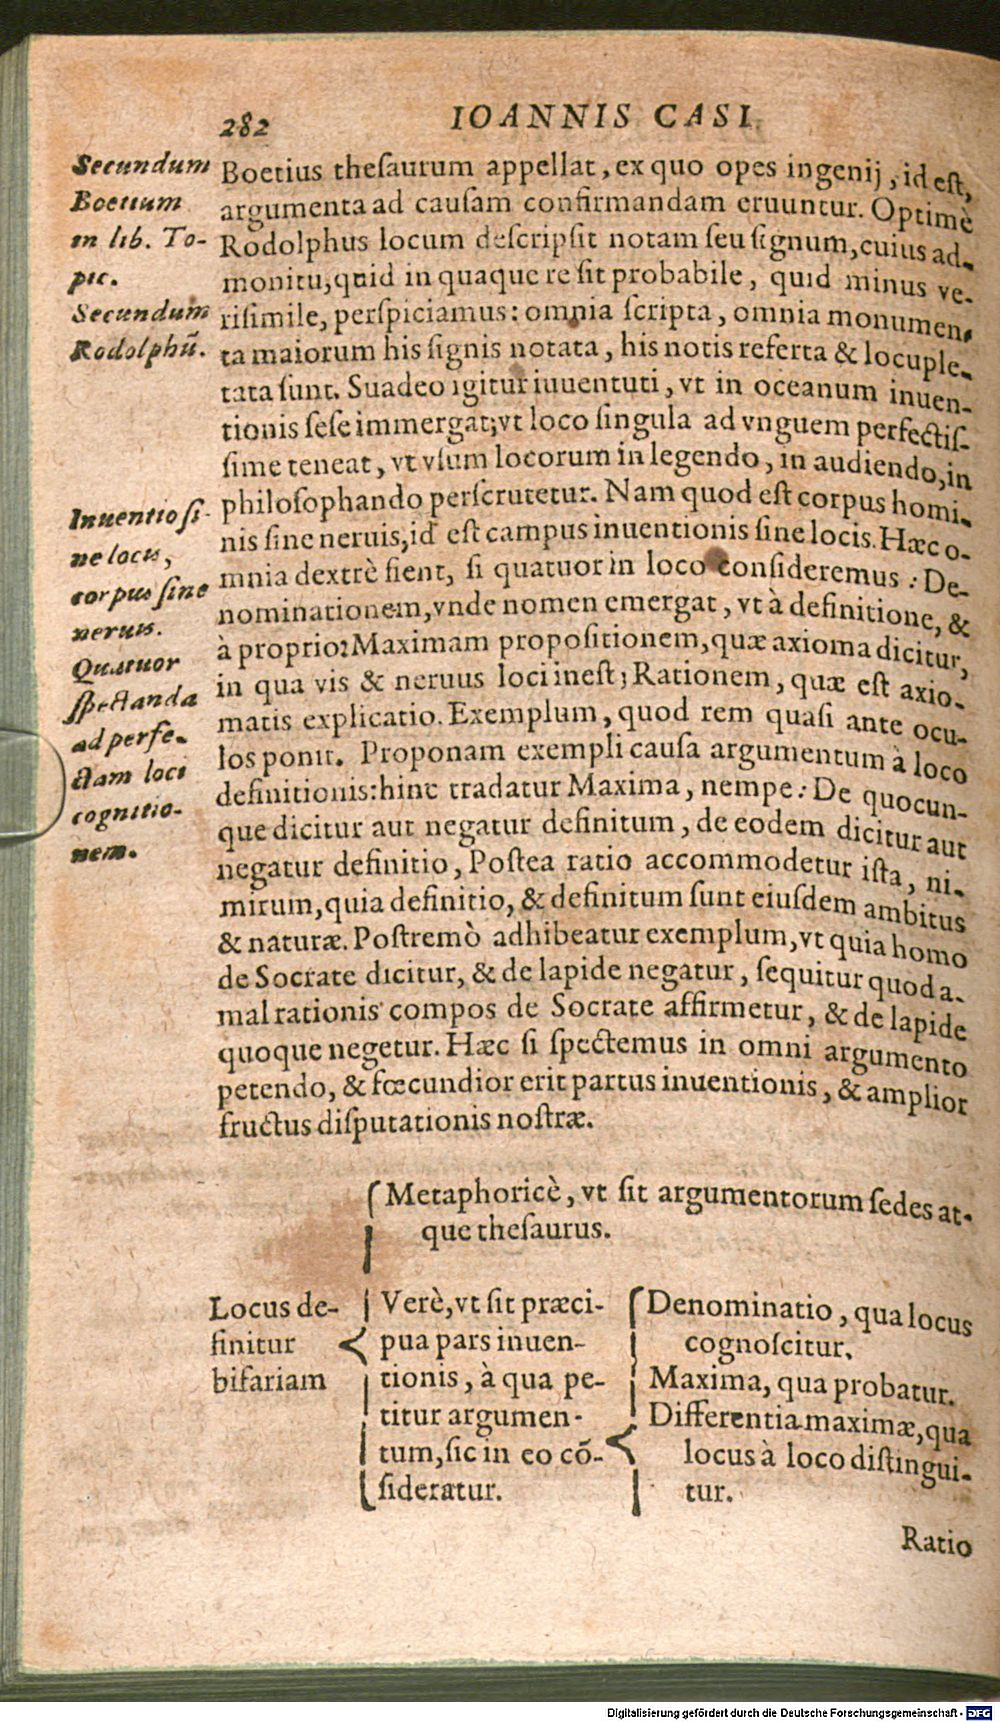 282
IOANNIS CASI
Secundum
Boetium
in lib. To-
pic.
Secundum
Rodolphū.
Boetius theſaurum appellat, ex quo opes ingenij, id eſt,
argumenta ad cauſam confirmandam eruuntur. Optimè
Rodolphus locum deſcripſit notam ſeu ſignum, cuius ad-
monitu, quid in quaque re ſit probabile, quid minus ve-
riſimile, perſpiciamus: omnia ſcripta, omnia monumen-
ta maiorum his ſignis notata, his notis referta & locuple-
tata ſunt. Suadeo igitur iuuentuti, vt in oceanum inuen-
tionis ſeſe immergat; vt loco ſingula ad vnguem perfectiſ-
ſime teneat, vt vſum locorum in legendo, in audiendo, in
philoſophando perſcrutetur. Nam quod eſt corpus homi-
nis ſine neruis, id eſt campus inuentionis ſine locis. Hæc o-
mnia dextrè fient, ſi quatuor in loco conſideremus: De-
nominationem, vnde nomen emergat, vt à definitione, &
à proprio: Maximam propoſitionem, quæ axioma dicitur,
in qua vis & neruus loci ineſt; Rationem, quæ eſt axio-
matis explicatio. Exemplum, quod rem quaſi ante ocu-
los ponit. Proponam exempli cauſa argumentum à loco
definitionis: hinc tradatur Maxima, nempe: De quocun-
que dicitur aut negatur definitum, de eodem dicitur aut
negatur definitio, Poſtea ratio accommodetur iſta, ni-
mirum, quia definitio, & definitum ſunt eiuſdem ambitus
& naturæ. Poſtremò adhibeatur exemplum, vt quia homo
de Socrate dicitur, & de lapide negatur, ſequitur quod a-
mal rationis compos de Socrate affirmetur, & de lapide
quoque negetur. Hæc ſi ſpectemus in omni argumento
petendo, & fœcundior erit partus inuentionis, & amplior
fructus diſputationis noſtræ.
Inuentio ſi-
ne locis,
corpus ſine
neruis.
Quatuor
ſpectanda
ad perfe-
ctam loci
cognitio-
nem.
Metaphoricè, vt ſit argumentorum ſedes at-
que theſaurus.
Locus de-
finitur
bifariam
Verè, vt ſit præci-
pua pars inuen-
tionis, à qua pe-
titur argumen-
tum, ſic in eo cō-
ſideratur.
Denominatio, qua locus
cognoſcitur.
Maxima, qua probatur.
Differentia maximæ, qua
locus à loco diſtingui-
tur.
Ratio
Digitalisierung gefördert durch die Deutsche Forschungsgemeinschaft - DFG